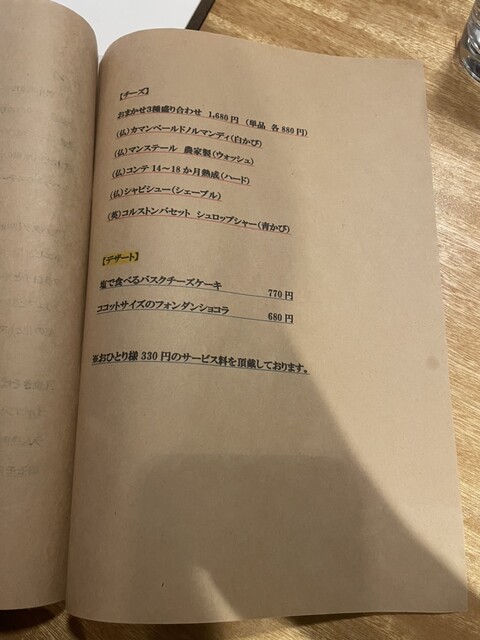 【チーズ】
おまかせ3種盛り合わせ 1,680円 (単品 各880円)
(仏)カマンベールドノルマンディ(白かび)
(仏)マンステール 農家製(ウォッシュ)
(仏)コンテ 14～18か月熟成(ハード)
(仏)シャビシュー(シェーブル)
(英)コルストンバセット シュロップシャー(青かび)
【デザート】
塩で食べるバスクチーズケーキ 770円
ココットサイズのフォンダンショコラ 680円
※おひとり様330円のサービス料を頂戴しております。